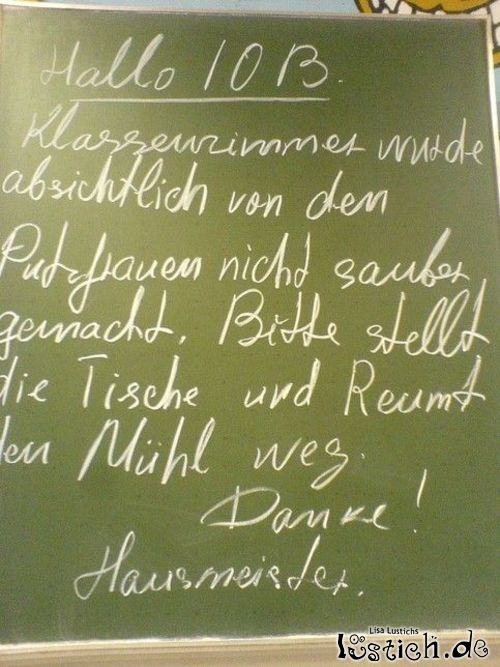 Hallo 10B.
Klassenzimmer wurde
absichtlich von den
Putzfrauen nicht sauber
gemacht. Bitte stellt
die Tische und Reumt
den Mühl weg.
Danke!
Hausmeister.
Lisa Lustichs
lustich.de